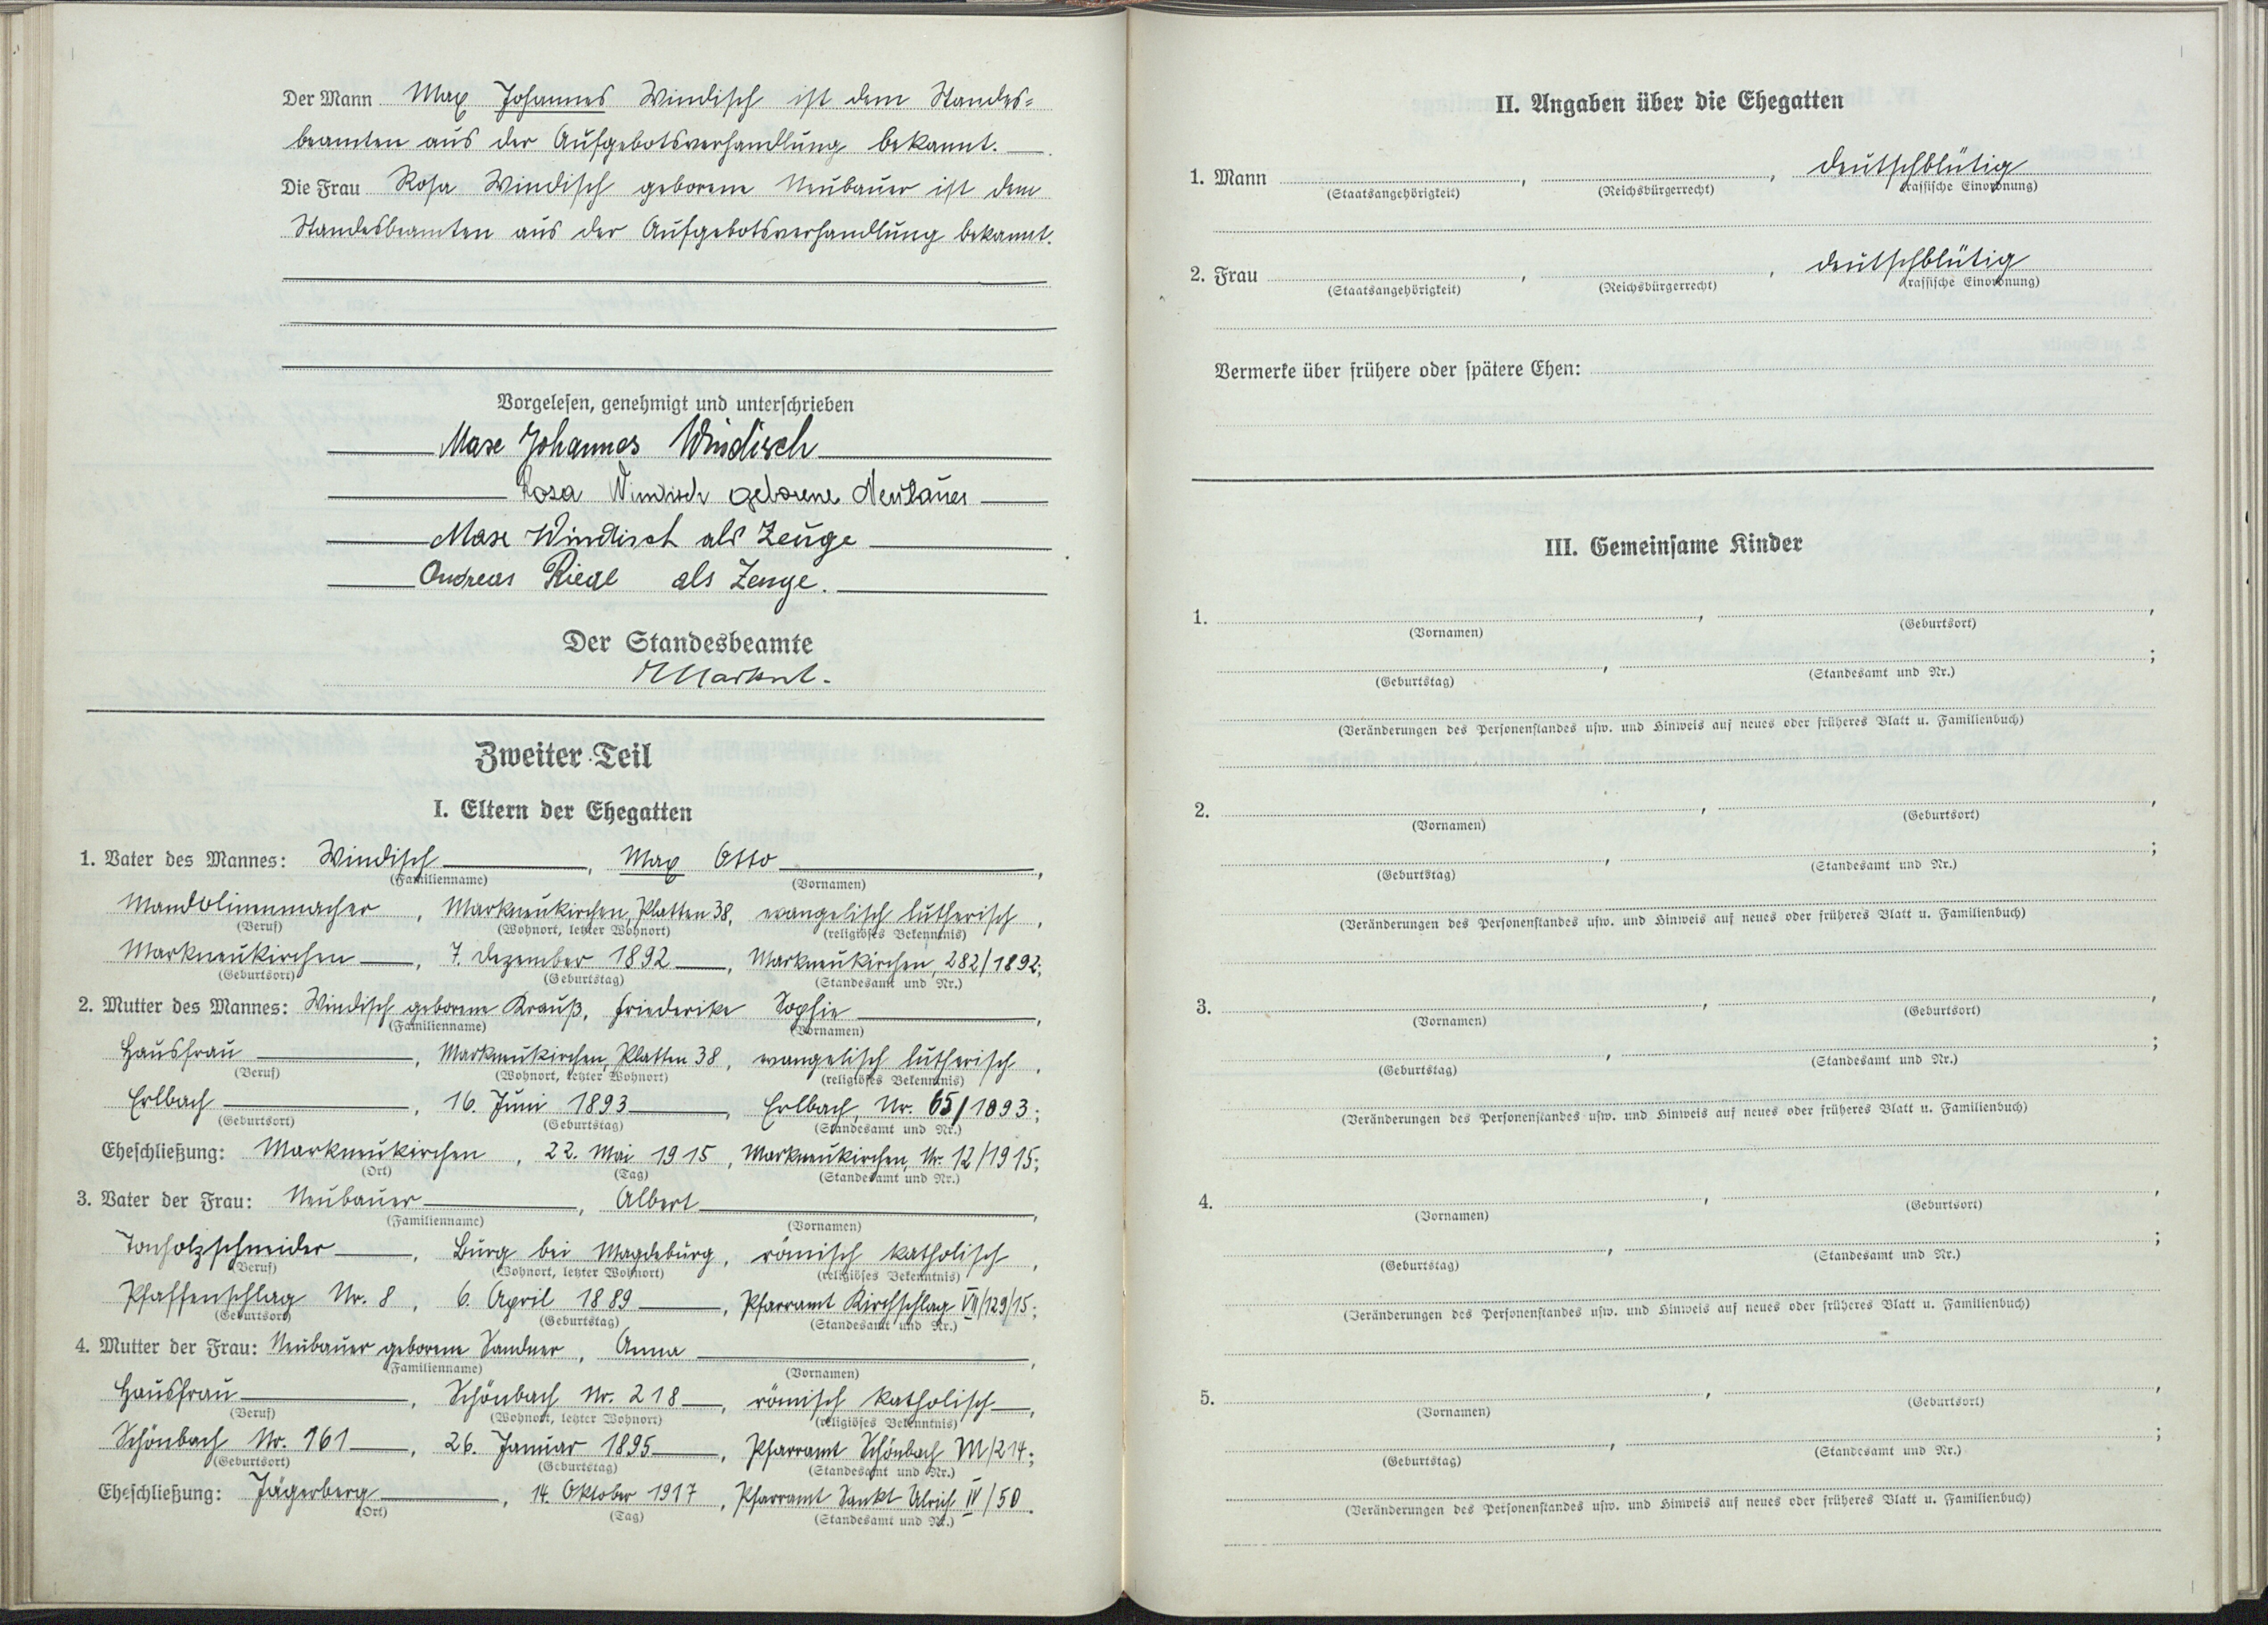 Der Mann Max Johannes Windisch ist dem Standes=
beamten aus der Aufgebotsverhandlung bekannt.
Die Frau Rosa Windisch geborene Neubauer ist dem
Standesbeamten aus der Aufgebotsverhandlung bekannt.
Vorgelesen, genehmigt und unterschrieben
Max Johannes Windisch
Rosa Windisch geborene Neubauer
Max Windisch als Zeuge
Andreas Riedl als Zeuge.
Der Standesbeamte
Zweiter Teil
I. Eltern der Ehegatten
1. Vater des Mannes: Windisch, Max Otto,
(Familienname) (Vornamen)
Mandolinenmacher, Markneukirchen, Platten 38, evangelisch lutherisch,
(Beruf) (Wohnort, letzter Wohnort) (religiöses Bekenntnis)
Markneukirchen, 7. Dezember 1892, Markneukirchen, 282/1892;
(Geburtsort) (Geburtstag) (Standesamt und Nr.)
2. Mutter des Mannes: Windisch geborene Krauß, Friederike Sophie,
(Familienname) (Vornamen)
Hausfrau, Markneukirchen, Platten 38, evangelisch lutherisch,
(Beruf) (Wohnort, letzter Wohnort) (religiöses Bekenntnis)
Erlbach, 16. Juni 1893, Erlbach, Nr. 65/1893;
(Geburtsort) (Geburtstag) (Standesamt und Nr.)
Eheschließung: Markneukirchen, 22. Mai 1915, Markneukirchen, Nr. 12/1915;
(Ort) (Tag) (Standesamt und Nr.)
3. Vater der Frau: Neubauer, Albert,
(Familienname) (Vornamen)
Tonholzschneider, Burg bei Magdeburg, römisch katholisch,
(Beruf) (Wohnort, letzter Wohnort) (religiöses Bekenntnis)
Pfaffenschlag Nr. 8, 6. April 1889, Pfarramt Kirchschlag VII/129/15;
(Geburtsort) (Geburtstag) (Standesamt und Nr.)
4. Mutter der Frau: Neubauer geborene Sandner, Anna,
(Familienname) (Vornamen)
Hausfrau, Schönbach Nr. 218, römisch katholisch,
(Beruf) (Wohnort, letzter Wohnort) (religiöses Bekenntnis)
Schönbach Nr. 161, 26. Januar 1895, Pfarramt Schönbach M/214;
(Geburtsort) (Geburtstag) (Standesamt und Nr.)
Eheschließung: Jägerberg, 14. Oktober 1917, Pfarramt Sankt Ulrich IV/50.
(Ort) (Tag) (Standesamt und Nr.)
II. Angaben über die Ehegatten
1. Mann , , deutschblütig
(Staatsangehörigkeit) (Reichsbürgerrecht) (rassische Einordnung)
2. Frau , , deutschblütig
(Staatsangehörigkeit) (Reichsbürgerrecht) (rassische Einordnung)
Vermerke über frühere oder spätere Ehen:
III. Gemeinsame Kinder
1. , ,
(Vornamen) (Geburtsort)
, ;
(Geburtstag) (Standesamt und Nr.)
(Veränderungen des Personenstandes usw. und Hinweis auf neues oder früheres Blatt u. Familienbuch)
2. , ,
(Vornamen) (Geburtsort)
, ;
(Geburtstag) (Standesamt und Nr.)
(Veränderungen des Personenstandes usw. und Hinweis auf neues oder früheres Blatt u. Familienbuch)
3. , ,
(Vornamen) (Geburtsort)
, ;
(Geburtstag) (Standesamt und Nr.)
(Veränderungen des Personenstandes usw. und Hinweis auf neues oder früheres Blatt u. Familienbuch)
4. , ,
(Vornamen) (Geburtsort)
, ;
(Geburtstag) (Standesamt und Nr.)
(Veränderungen des Personenstandes usw. und Hinweis auf neues oder früheres Blatt u. Familienbuch)
5. , ,
(Vornamen) (Geburtsort)
, ;
(Geburtstag) (Standesamt und Nr.)
(Veränderungen des Personenstandes usw. und Hinweis auf neues oder früheres Blatt u. Familienbuch)